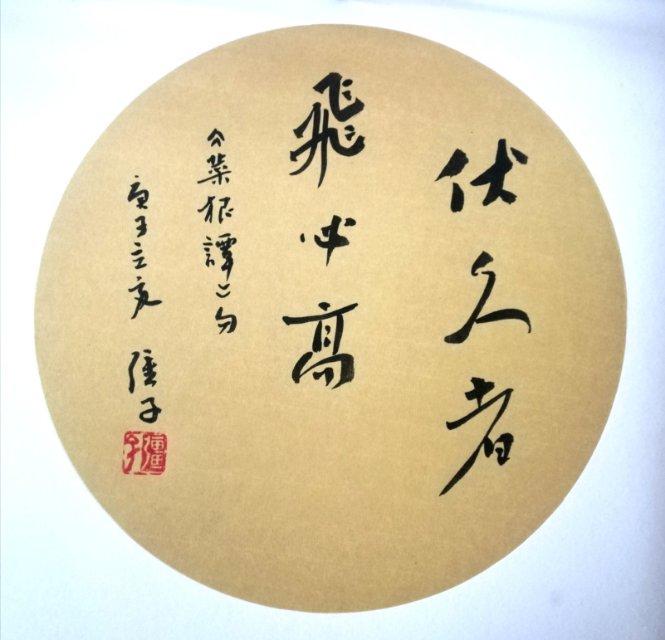 伏久者
飛必高
《菜根譚》句
庚子立夏